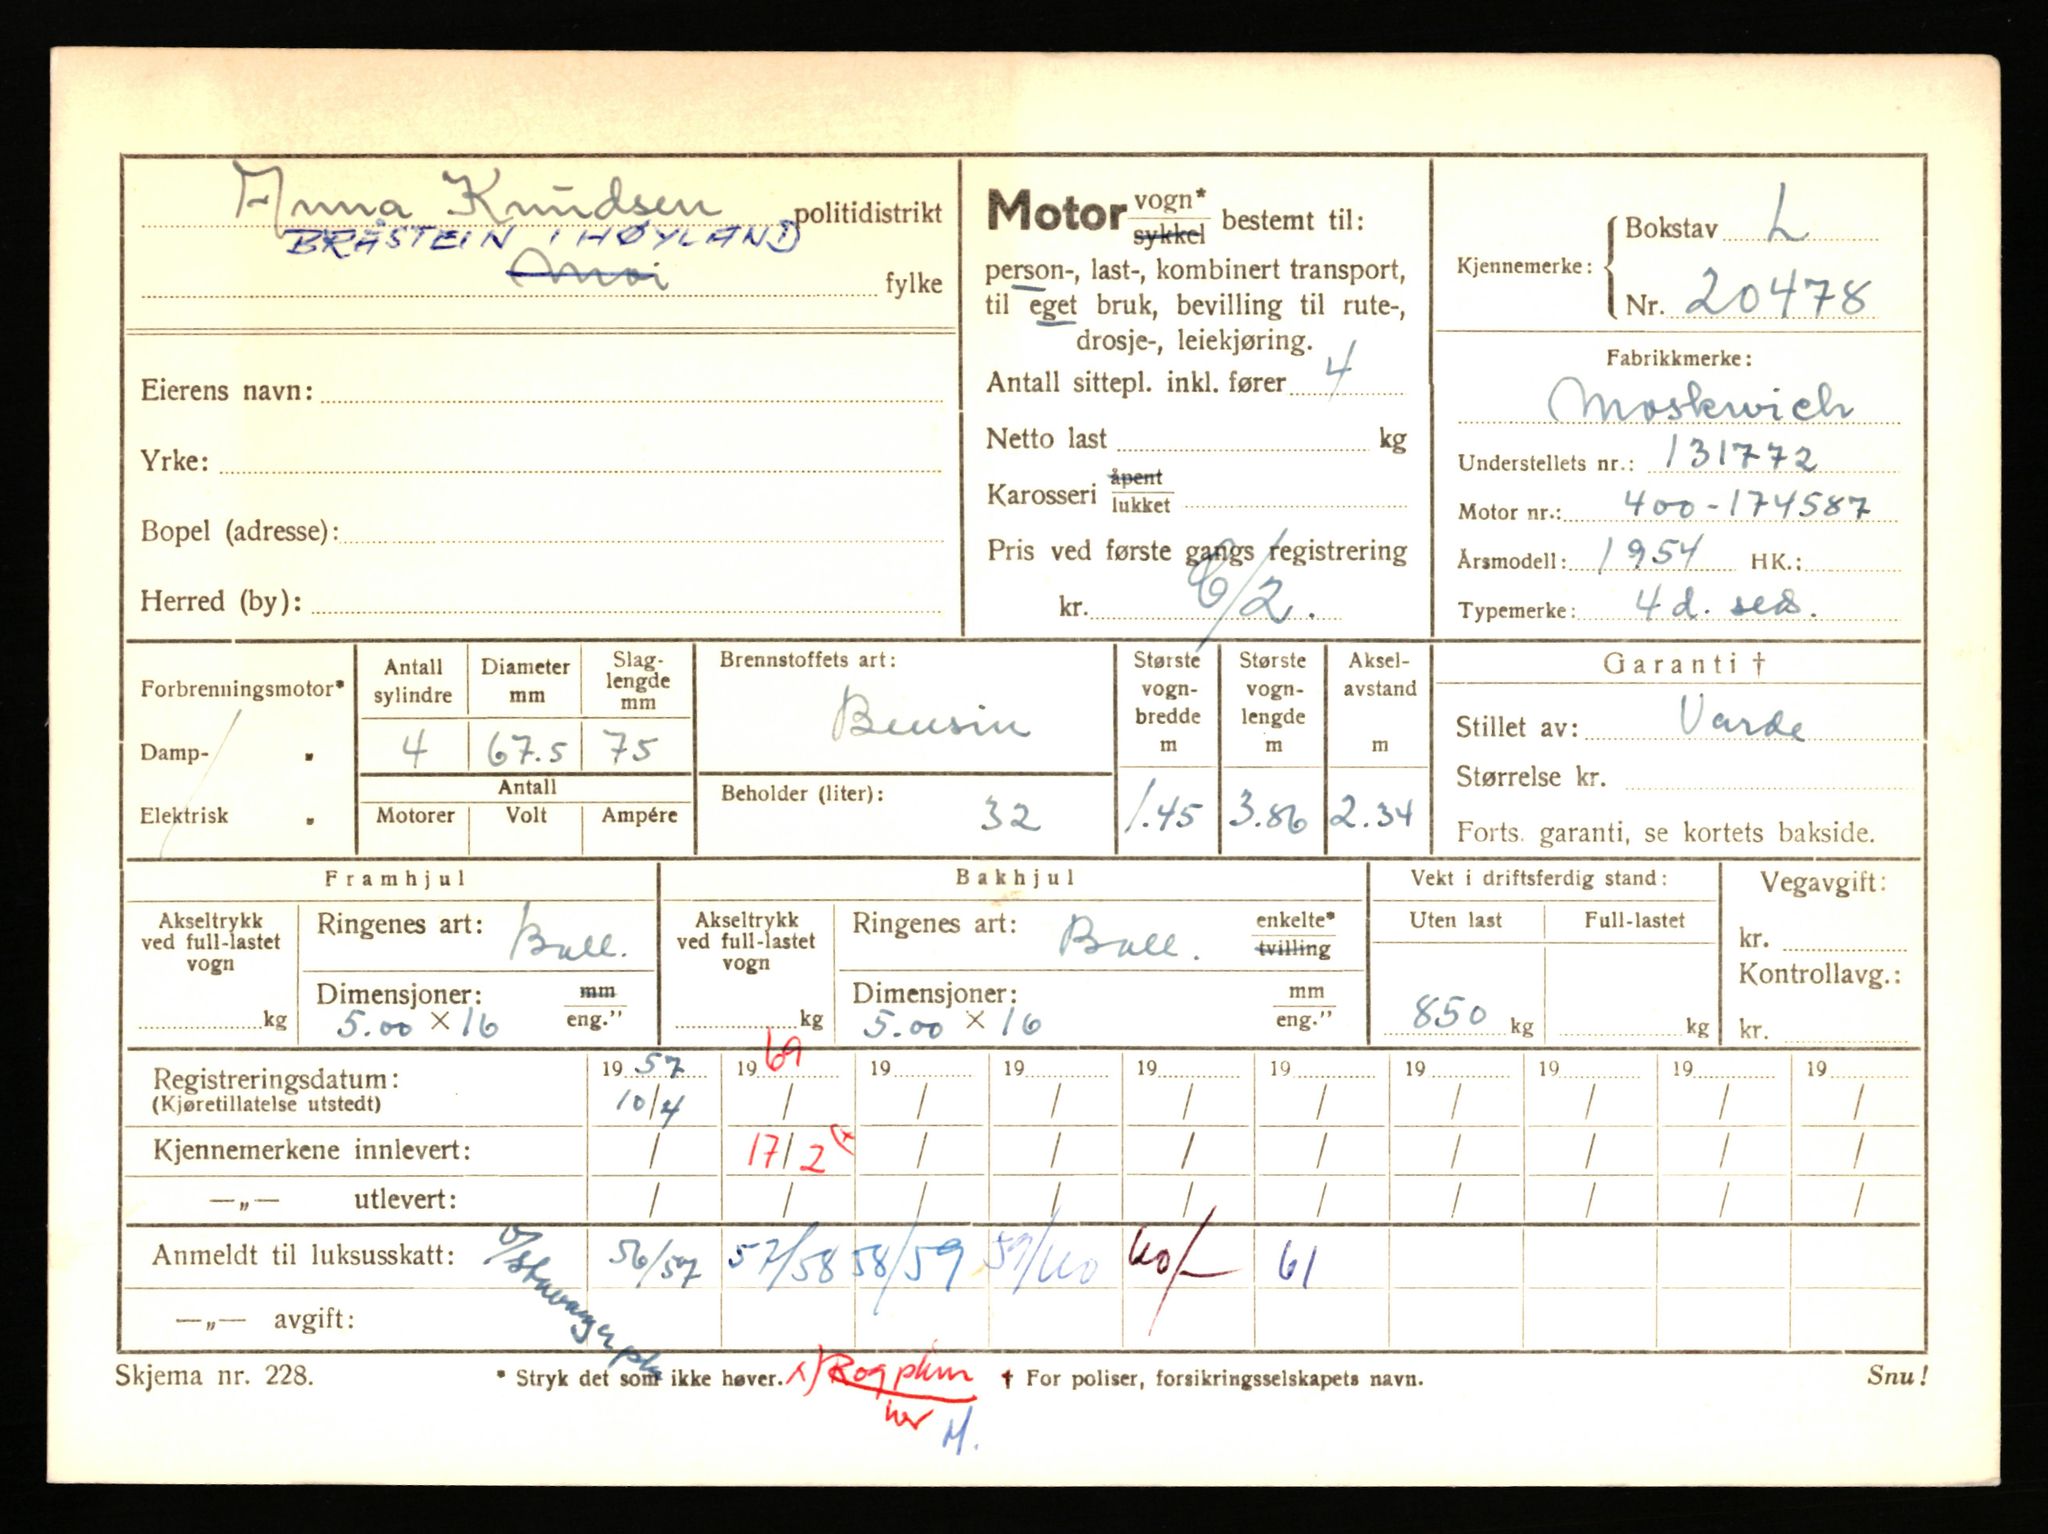 Anna Knudsen politidistrikt
BRÅSTEIN I HØYLAND
Moi fylke
Eierens navn:
Yrke:
Bopel (adresse):
Herred (by):
Motor vogn* sykkel bestemt til:
person-, last-, kombinert transport,
til eget bruk, bevilling til rute-,
drosje-, leiekjøring.
Antall sittepl. inkl. fører 4
Netto last kg
Karosseri åpent lukket
Pris ved første gangs registrering
kr.
Kjennemerke: Bokstav L
Nr. 20478
Fabrikkmerke:
Moskwich
Understellets nr.: 131772
Motor nr.: 400-174587
Årsmodell: 1954 HK.:
Typemerke: 4 d. sed.
Forbrenningsmotor*
Damp- "
Elektrisk "
Antall sylindre 4
Diameter mm 67.5
Slag-lengde mm 75
Antall
Motorer Volt Ampére
Brennstoffets art:
Bensin
Beholder (liter): 32
Største vogn-bredde m 1.45
Største vogn-lengde m 3.86
Aksel-avstand m 2.34
Garanti †
Stillet av: Varde
Størrelse kr.
Forts. garanti, se kortets bakside.
Framhjul
Akseltrykk ved full-lastet vogn
kg
Ringenes art: Ball.
Dimensjoner: mm eng."
5.00 × 16
Bakhjul
Akseltrykk ved full-lastet vogn
kg
Ringenes art: Ball. enkelte* tvilling
Dimensjoner: mm eng."
5.00 × 16
Vekt i driftsferdig stand:
Uten last Full-lastet
850 kg kg
Vegavgift:
kr.
Kontrollavg.:
kr.
Registreringsdatum: 19 57 19 69 19 19 19 19 19 19 19 19
(Kjøretillatelse utstedt) 10/4 / / / / / / / / /
Kjennemerkene innlevert: / 17/2 x) / / / / / / / /
—„— utlevert: / / / / / / / / / /
Anmeldt til luksusskatt: 56/57 57/58 58/59 59/60 60/— 61
v/Stavanger pk
—„— avgift:
Skjema nr. 228. * Stryk det som ikke høver. x) Rog plum † For poliser, forsikringsselskapets navn. Snu!
her M.